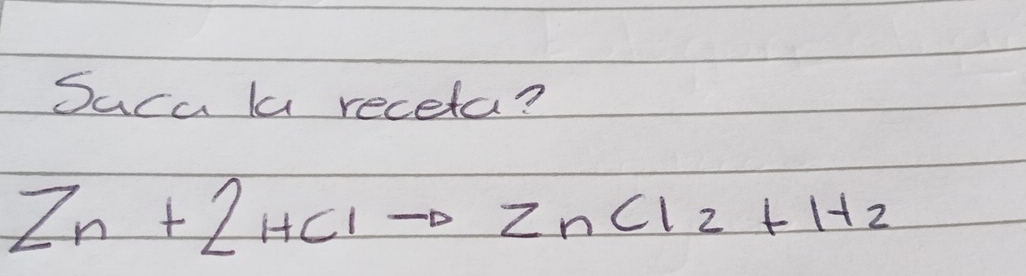 Saca la receta?
Zn + 2HCl → ZnCl2 + H2